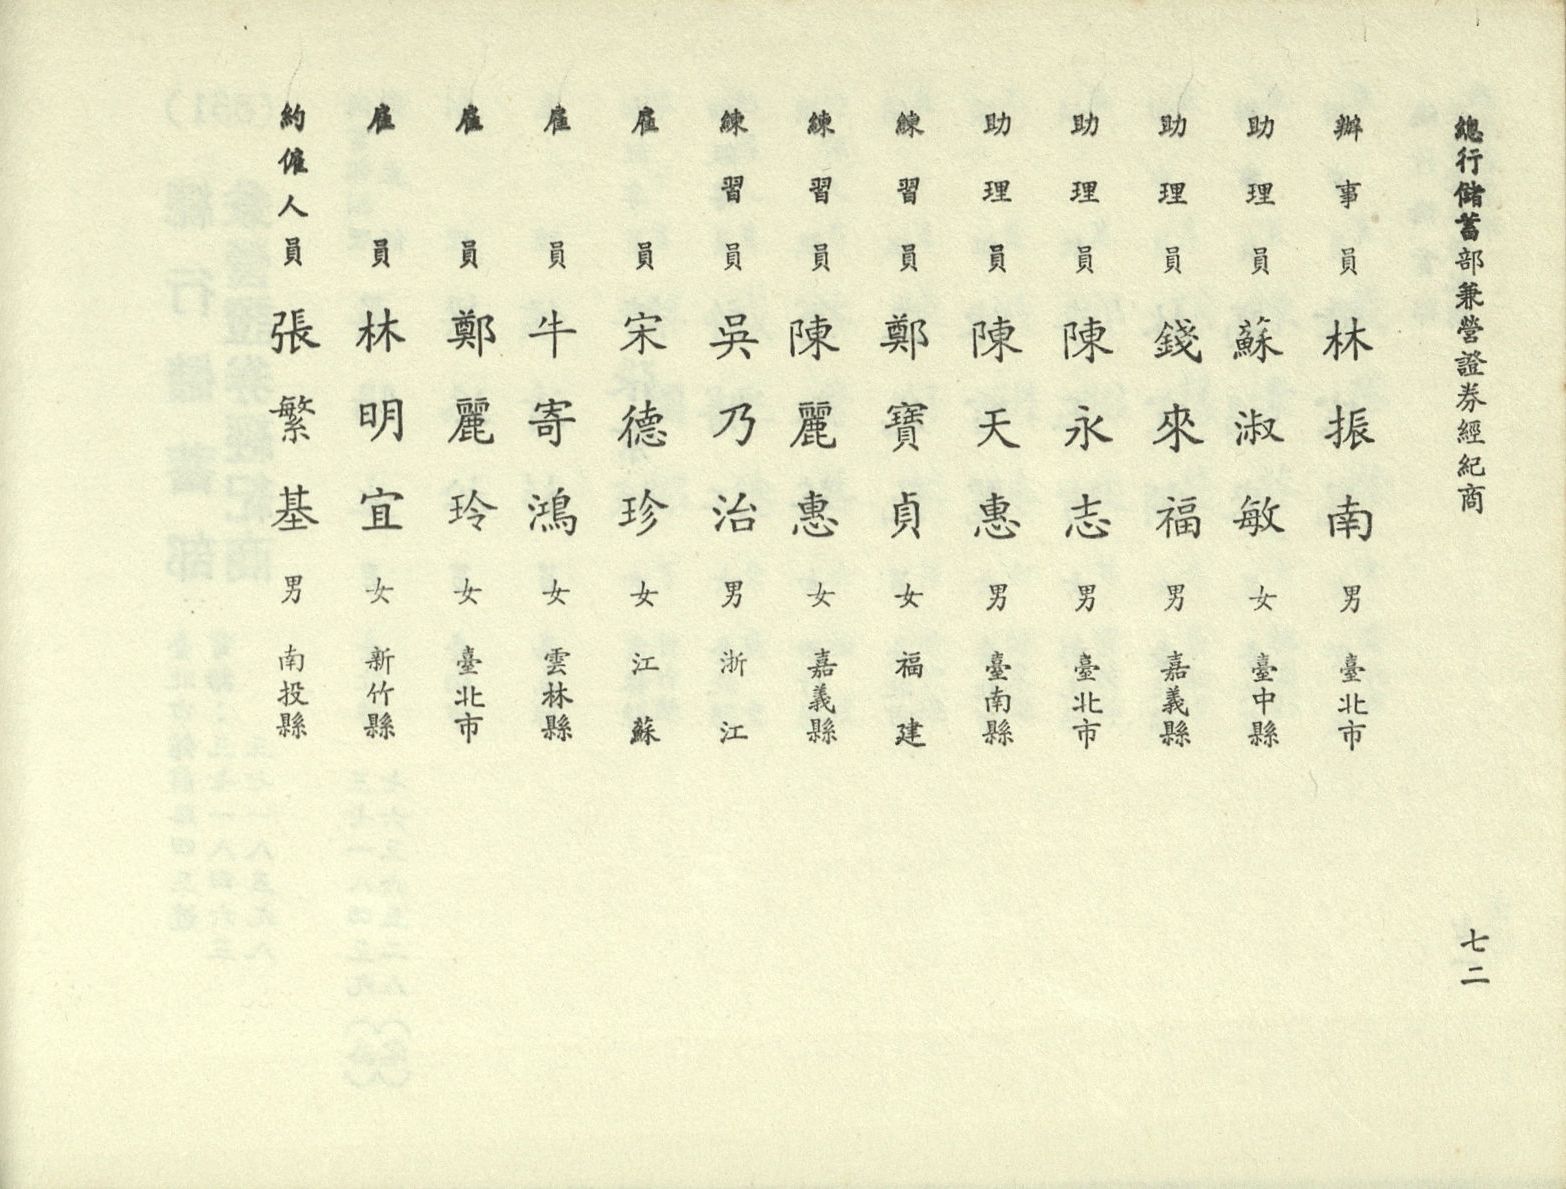 總行儲蓄部兼營證券經紀商
七二
辦事員 林振南 男 臺北市
助理員 蘇淑敏 女 臺中縣
助理員 錢來福 男 嘉義縣
助理員 陳永志 男 臺北市
助理員 陳天惠 男 臺南縣
練習員 鄭寶貞 女 福建
練習員 陳麗惠 女 嘉義縣
練習員 吳乃治 男 浙江
雇員 宋德珍 女 江蘇
雇員 牛寄鴻 女 雲林縣
雇員 鄭麗玲 女 臺北市
雇員 林明宜 女 新竹縣
約僱人員 張繁基 男 南投縣